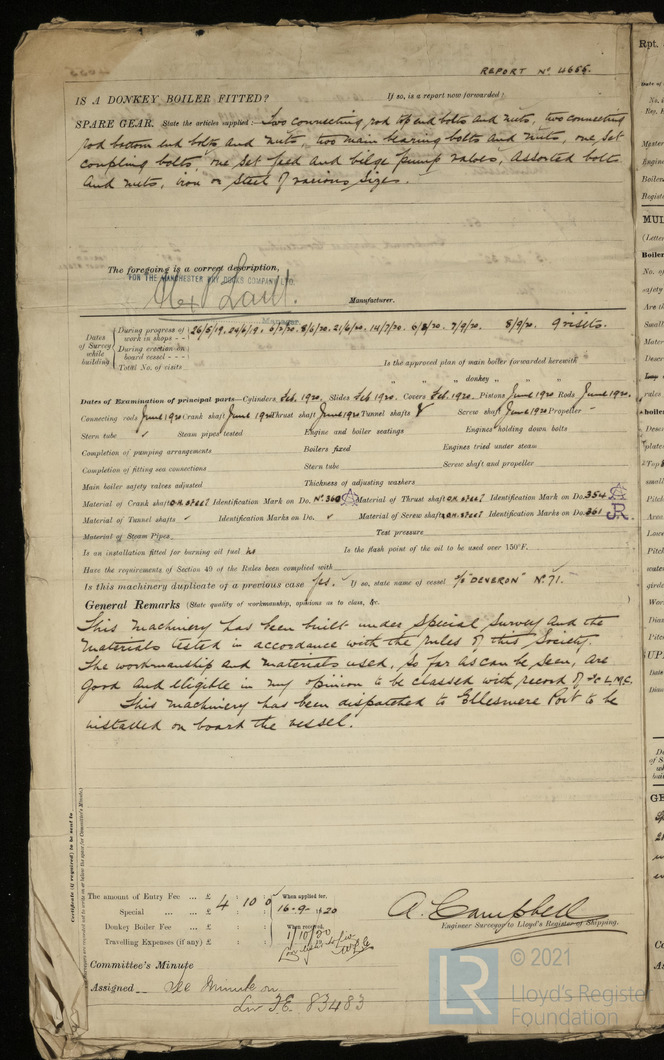 REPORT No 4655.
IS A DONKEY BOILER FITTED? If so, is a report now forwarded?
SPARE GEAR. State the articles supplied:— Two connecting rod top end bolts and nuts, two connecting
rod bottom end bolts and nuts, two main bearing bolts and nuts, one set
coupling bolts, one set feed and bilge pump valves, assorted bolts
and nuts, iron or steel of various sizes.
The foregoing is a correct description,
FOR THE MANCHESTER DRY DOCKS COMPANY LTD.
Manufacturer.
Manager
Dates of Survey while building
During progress of work in shops - - 26/5/19. 24/6/19. 8/6/20. 21/6/20. 14/7/20. 6/8/20. 7/9/20. 8/9/20. 9 visits.
During erection on board vessel - - -
Total No. of visits Is the approved plan of main boiler forwarded herewith
" " " donkey " " "
Dates of Examination of principal parts—Cylinders Feb. 1920. Slides Feb. 1920. Covers Feb. 1920. Pistons June 1920 Rods June 1920.
Connecting rods June 1920 Crank shaft June 1920 Thrust shaft June 1920 Tunnel shafts Screw shaft June 1920 Propeller -
Stern tube Steam pipes tested Engine and boiler seatings Engines holding down bolts
Completion of pumping arrangements Boilers fixed Engines tried under steam
Completion of fitting sea connections Stern tube Screw shaft and propeller
Main boiler safety valves adjusted Thickness of adjusting washers
Material of Crank shaft O.H. Steel Identification Mark on Do. No 360 Material of Thrust shaft O.H. Steel Identification Mark on Do. 354
Material of Tunnel shafts Identification Marks on Do. Material of Screw shafts O.H. Steel Identification Marks on Do. 361 JR
Material of Steam Pipes Test pressure
Is an installation fitted for burning oil fuel no Is the flash point of the oil to be used over 150°F.
Have the requirements of Section 49 of the Rules been complied with
Is this machinery duplicate of a previous case Yes. If so, state name of vessel S/S "DEVERON" No 71.
General Remarks (State quality of workmanship, opinions as to class, &c. )
This machinery has been built under Special Survey and the
materials tested in accordance with the rules of this Society.
The workmanship and materials used, so far as can be seen, are
good and eligible in my opinion to be classed with record of L.M.C.
This machinery has been dispatched to Ellesmere Port to be
installed on board the vessel.
The amount of Entry Fee ... £ 4 : 10 : 0 When applied for,
Special ... ... £ 16-9-1920
Donkey Boiler Fee ... £ When received,
Travelling Expenses (if any) £ 1/10/20
A. Campbell
Engineer Surveyor to Lloyd's Register of Shipping.
Committee's Minute
Assigned See Minute on
Liv F.E. 83483
LR
© 2021
Lloyd's Register
Foundation